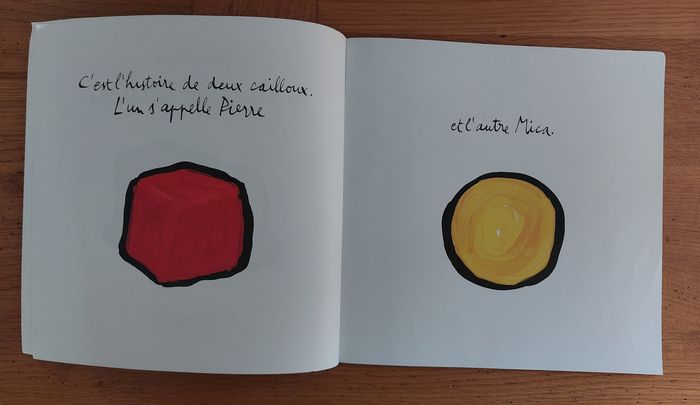 C'est l'histoire de deux cailloux.
L'un s'appelle Pierre
et l'autre Mica.